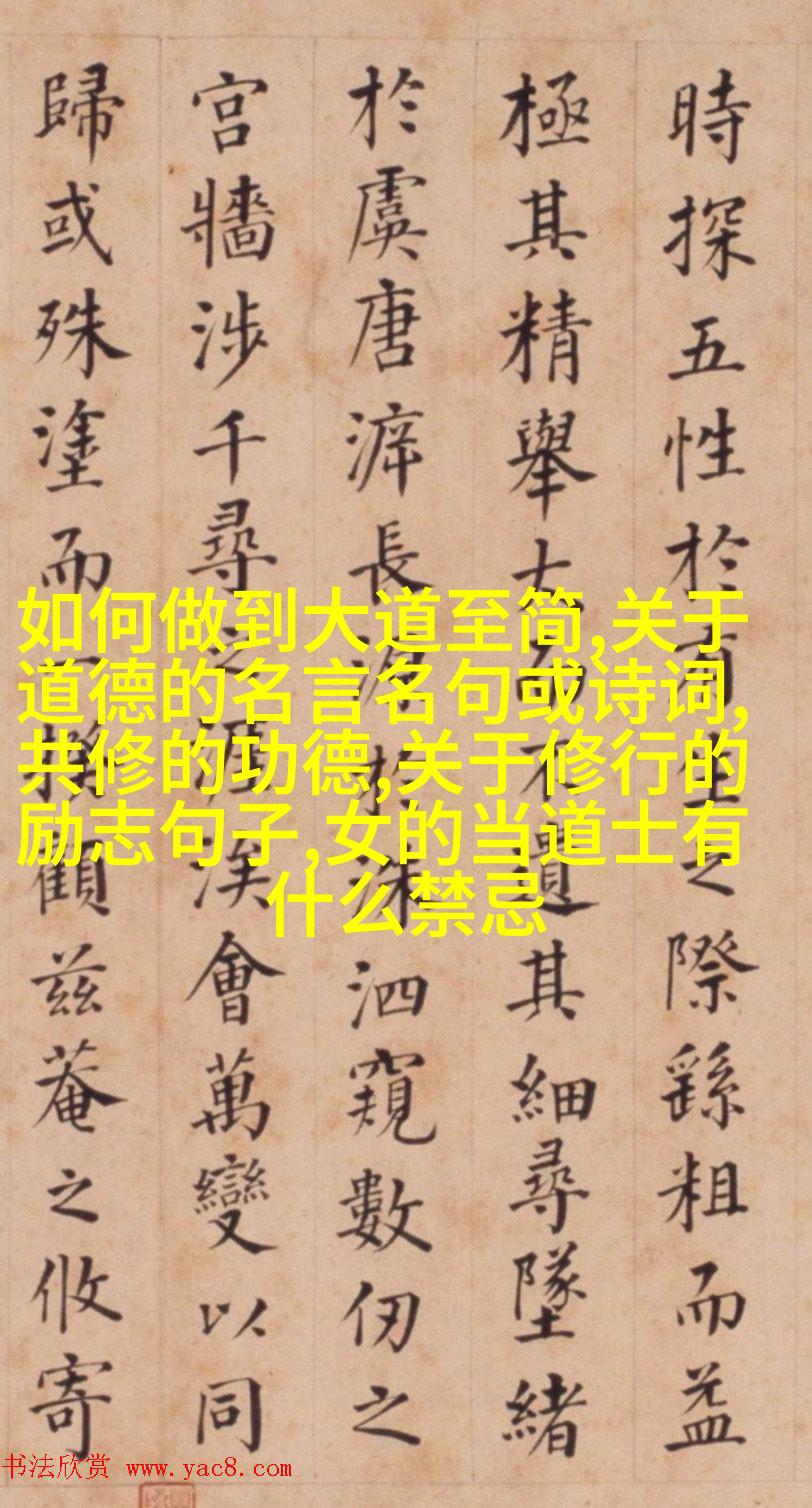 時探五性於有生之際繇粗而益
極其精舉大而不遺其細尋墜緒
於虞唐滸長源於洙泗窺數仞之
宮牆涉千尋之涯涘會萬變以同
歸或殊塗而一揆顧茲菴之攸寄
如何做到大道至简,关于
道德的名言名句或诗词,
共修的功德,关于修行的
励志句子,女的当道士有
什么禁忌
书法欣赏 www.yac8.com